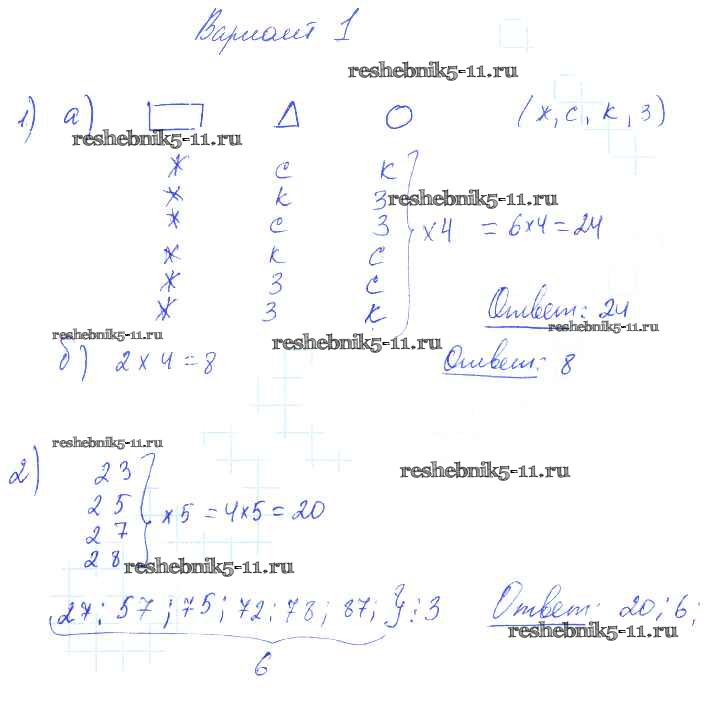 Вариант 1
reshebnik5-11.ru
1) а) (ж, с, к, з)
reshebnik5-11.ru
ж с к
ж к з reshebnik5-11.ru
ж с з } x4 = 6x4 = 24
ж к с
ж з с
ж з к Ответ: 24
reshebnik5-11.ru reshebnik5-11.ru reshebnik5-11.ru
б) 2 x 4 = 8 Ответ: 8
reshebnik5-11.ru
2) 23 reshebnik5-11.ru
25 } x5 = 4x5 = 20
27
28 reshebnik5-11.ru
27; 57; 75; 72; 78; 87; } : 3 Ответ: 20; 6;
reshebnik5-11.ru
6